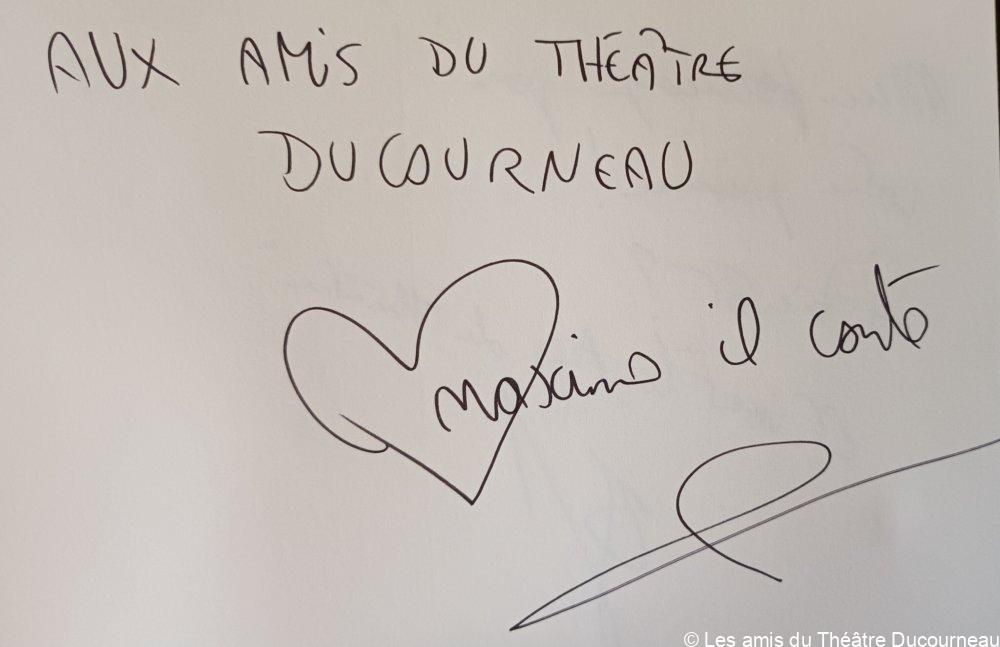 AUX AMIS DU THÉÂTRE
DUCOURNEAU
Maximo il conte
© Les amis du Théâtre Ducourneau